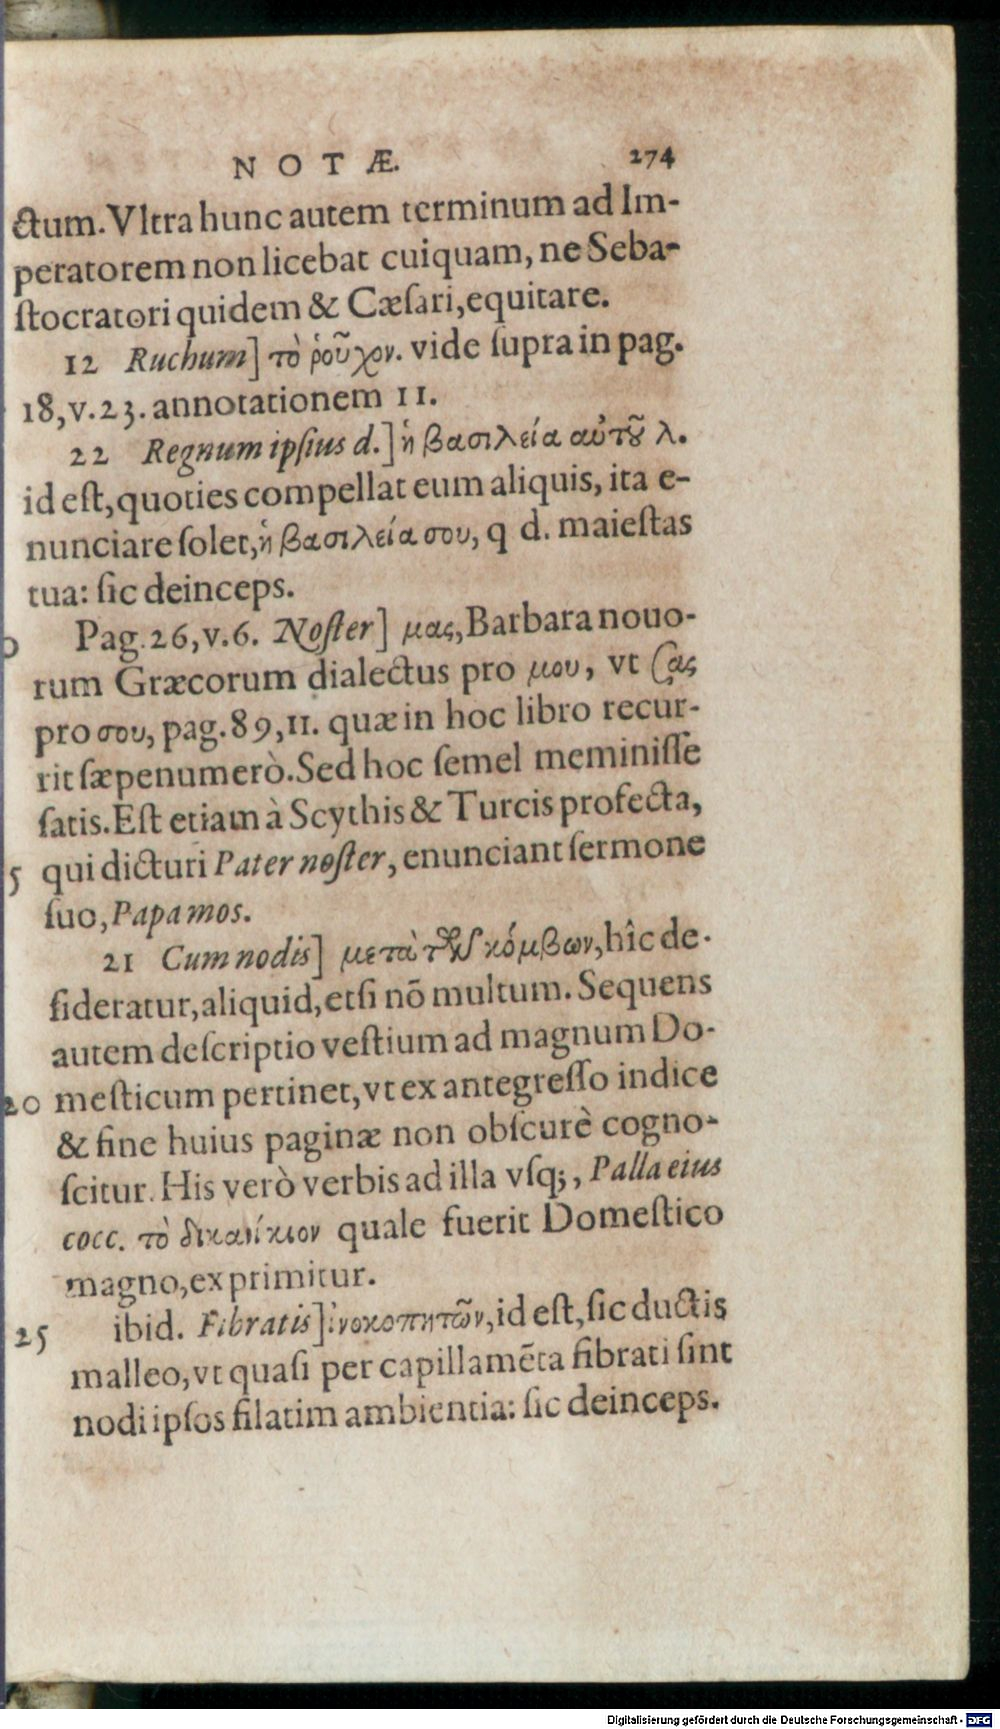 NOTÆ. 274
ctum. Vltra hunc autem terminum ad Im-
peratorem non licebat cuiquam, ne Seba-
ſtocratori quidem & Cæſari, equitare.
12 Ruchum] τὸ ῥοῦχον. vide ſupra in pag.
18, v. 23. annotationem 11.
22 Regnum ipſius d.] ἡ βασιλεία αὐτοῦ λ.
id eſt, quoties compellat eum aliquis, ita e-
nunciare ſolet, ἡ βασιλεία σου, q d. maieſtas
tua: ſic deinceps.
Pag. 26, v. 6. Noſter] μας, Barbara nouo-
rum Græcorum dialectus pro μου, vt σας
pro σου, pag. 89, 11. quæ in hoc libro recur-
rit ſæpenumerò. Sed hoc ſemel meminiſſe
ſatis. Eſt etiam à Scythis & Turcis profecta,
5 qui dicturi Pater noſter, enunciant ſermone
ſuo, Papa mos.
21 Cum nodis] μετὰ τῶν κόμβων, hîc de-
ſideratur, aliquid, etſi nō multum. Sequens
autem deſcriptio veſtium ad magnum Do-
20 meſticum pertinet, vt ex antegreſſo indice
& fine huius paginæ non obſcurè cogno-
ſcitur. His verò verbis ad illa vſq;, Palla eius
cocc. τὸ δικανίκιον quale fuerit Domeſtico
magno, exprimitur.
25 ibid. Fibratis] ἰνοκοπητῶν, id eſt, ſic ductis
malleo, vt quaſi per capillamēta fibrati ſint
nodi ipſos filatim ambientia: ſic deinceps.
Digitalisierung gefördert durch die Deutsche Forschungsgemeinschaft - DFG